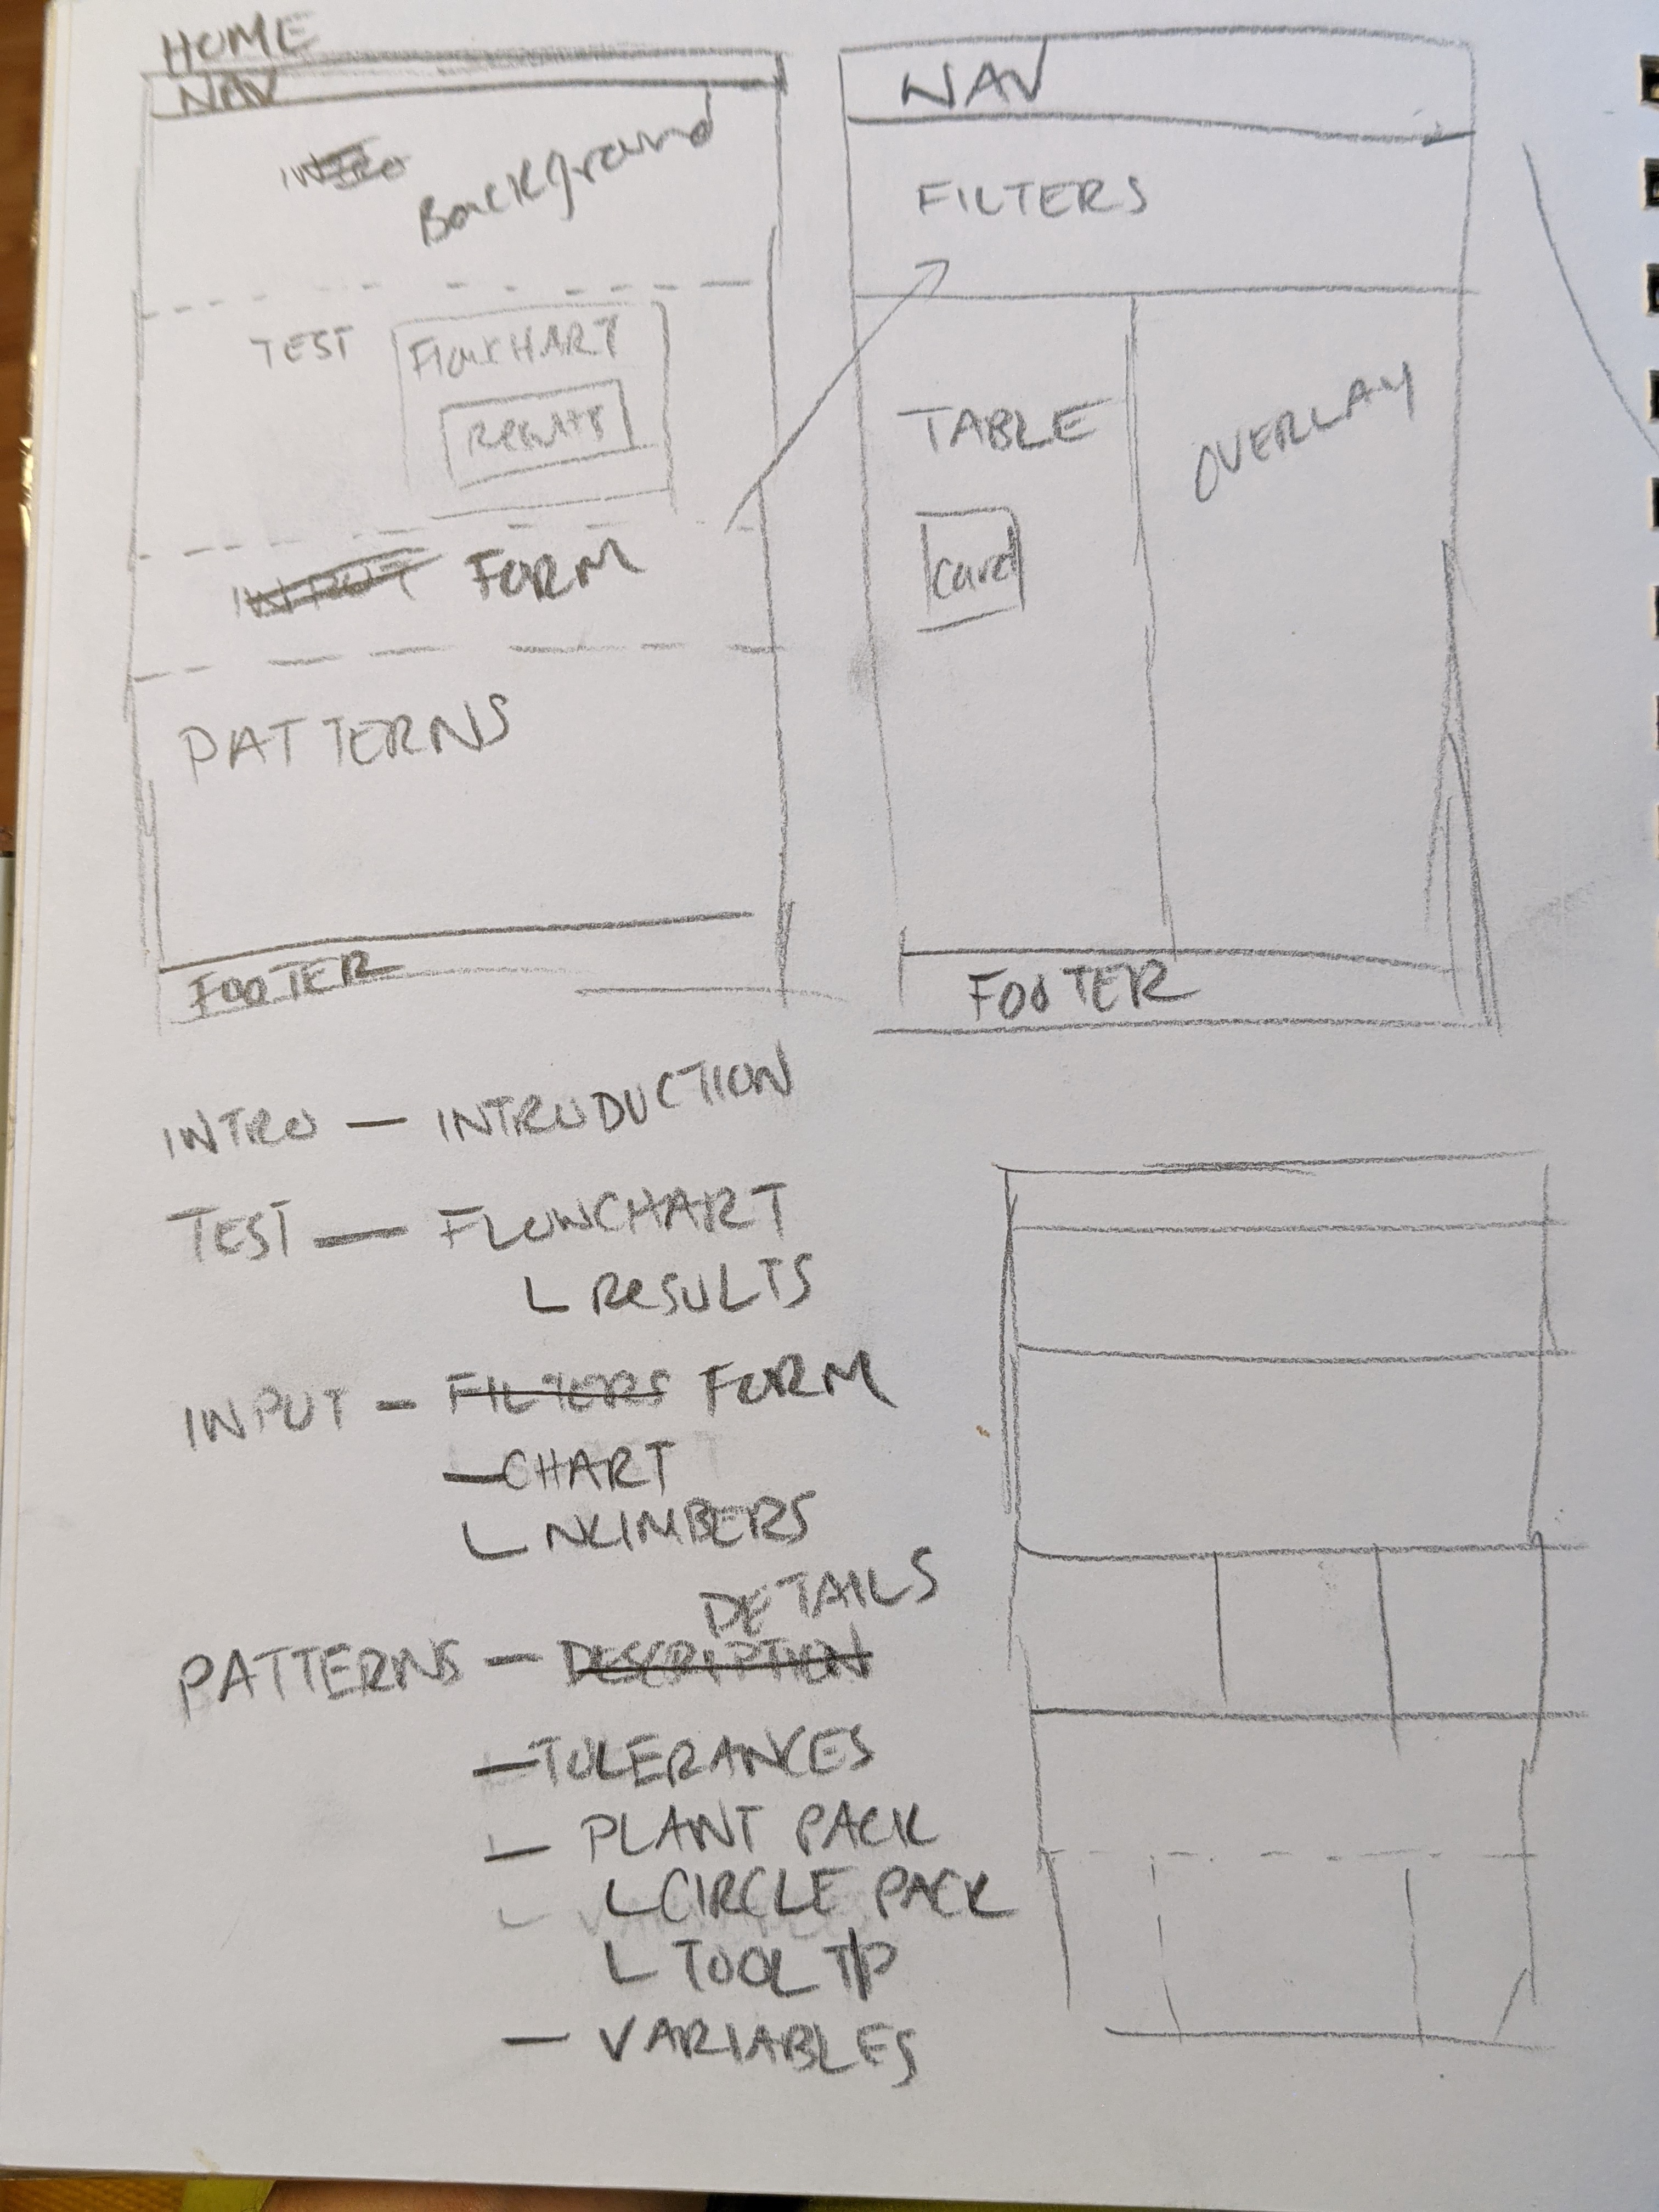 HOME
NAV
INTRO
Background
TEST
FLOWCHART
RESULTS
FORM
PATTERNS
FOOTER
NAV
FILTERS
TABLE
OVERLAY
Card
FOOTER
INTRO — INTRODUCTION
TEST — FLOWCHART
L RESULTS
INPUT - FILTERS FORM
— CHART
L NUMBERS
DETAILS
PATTERNS — DESCRIPTION
— TOLERANCES
L PLANT PACK
L CIRCLE PACK
L TOOL TIP
— VARIABLES